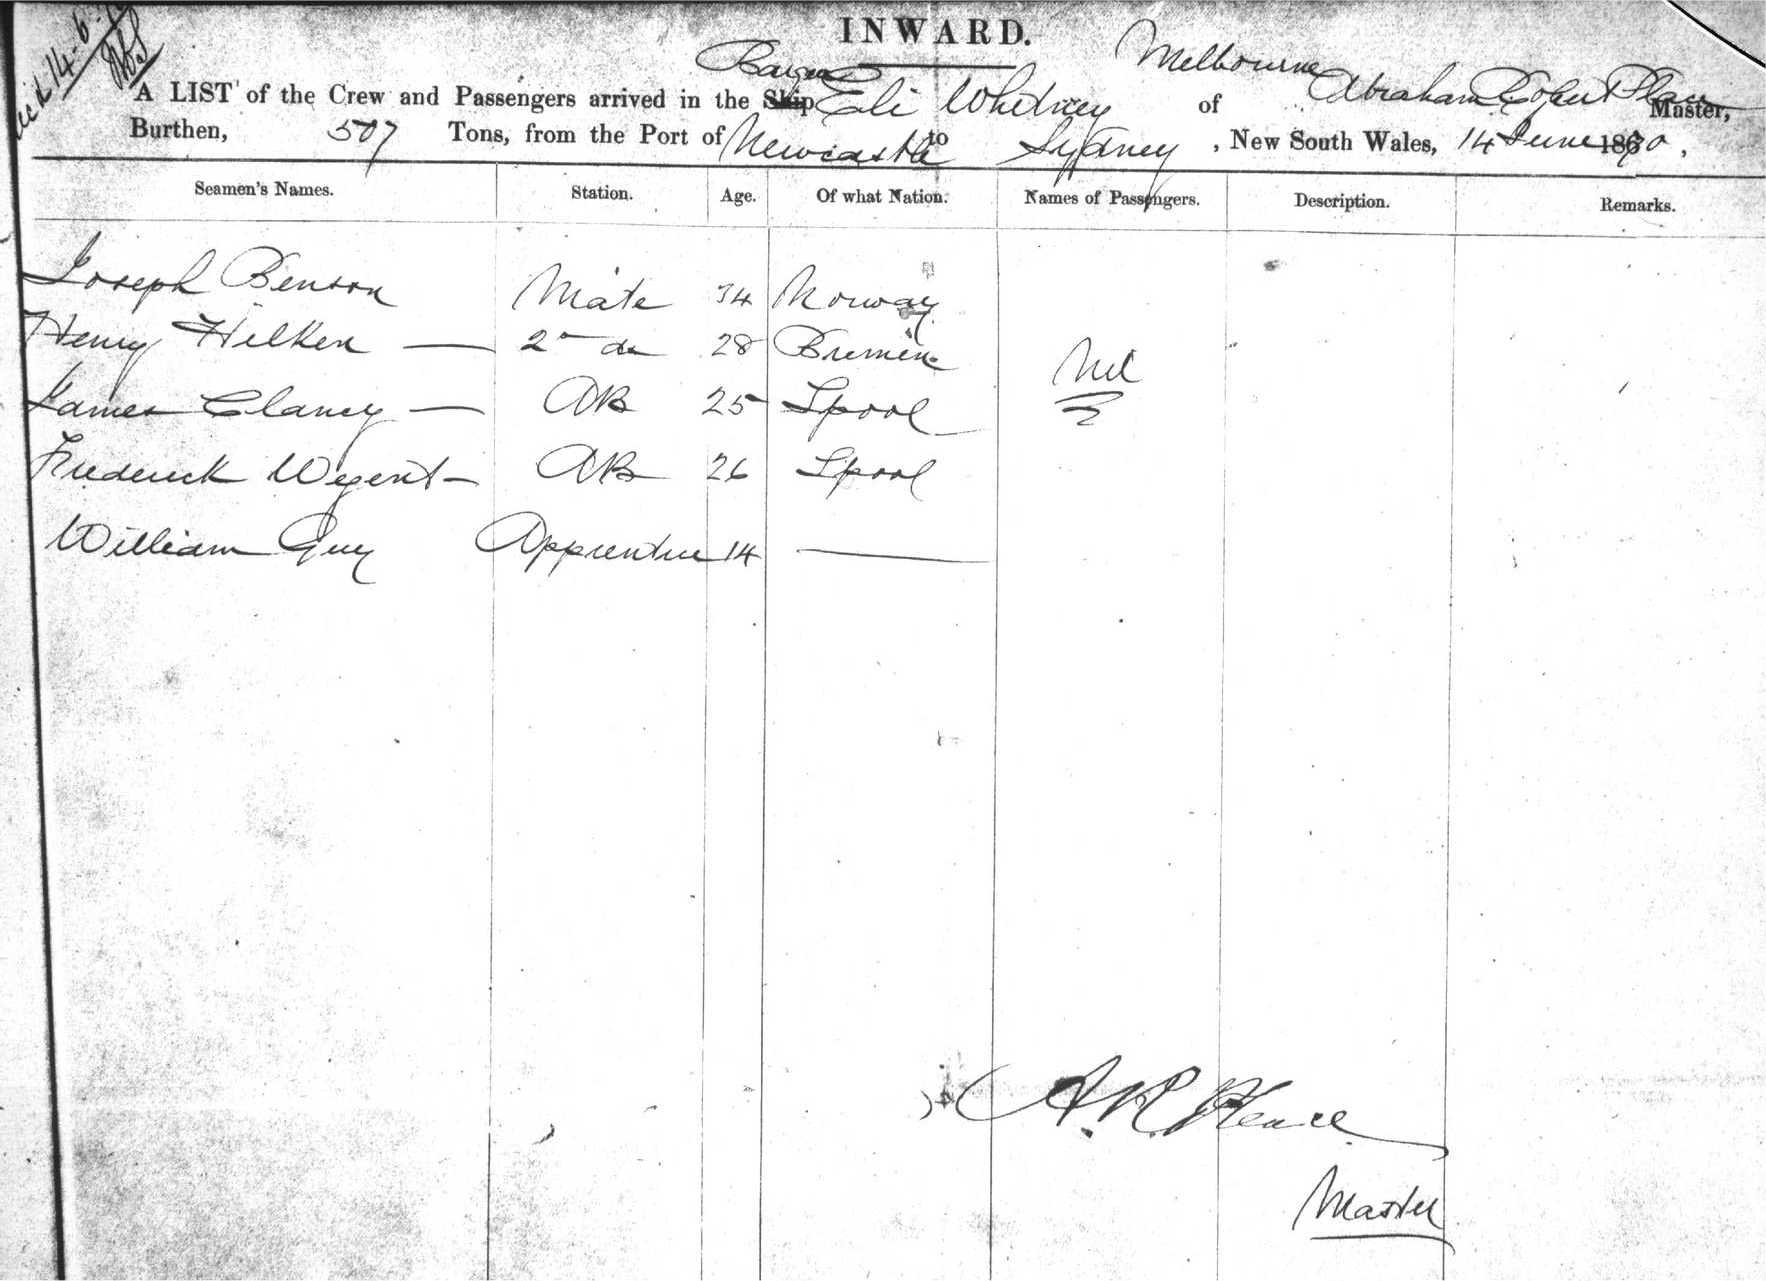 14-6-
INWARD.
Barque Melbourne
A LIST of the Crew and Passengers arrived in the Ship Eli Whitney of Abraham Master,
Burthen, 507 Tons, from the Port of Newcastle to Sydney, New South Wales, 14 June 1870,
Seamen's Names. Station. Age. Of what Nation. Names of Passengers. Description. Remarks.
Joseph Benson Mate 34 Norway
Henry Hilken — 2nd do 28 Bremen Nil
James Clancy — AB 25 Lpool
Frederick Wegent — AB 26 Lpool
William Guy Apprentice 14 —
A. R.
Master